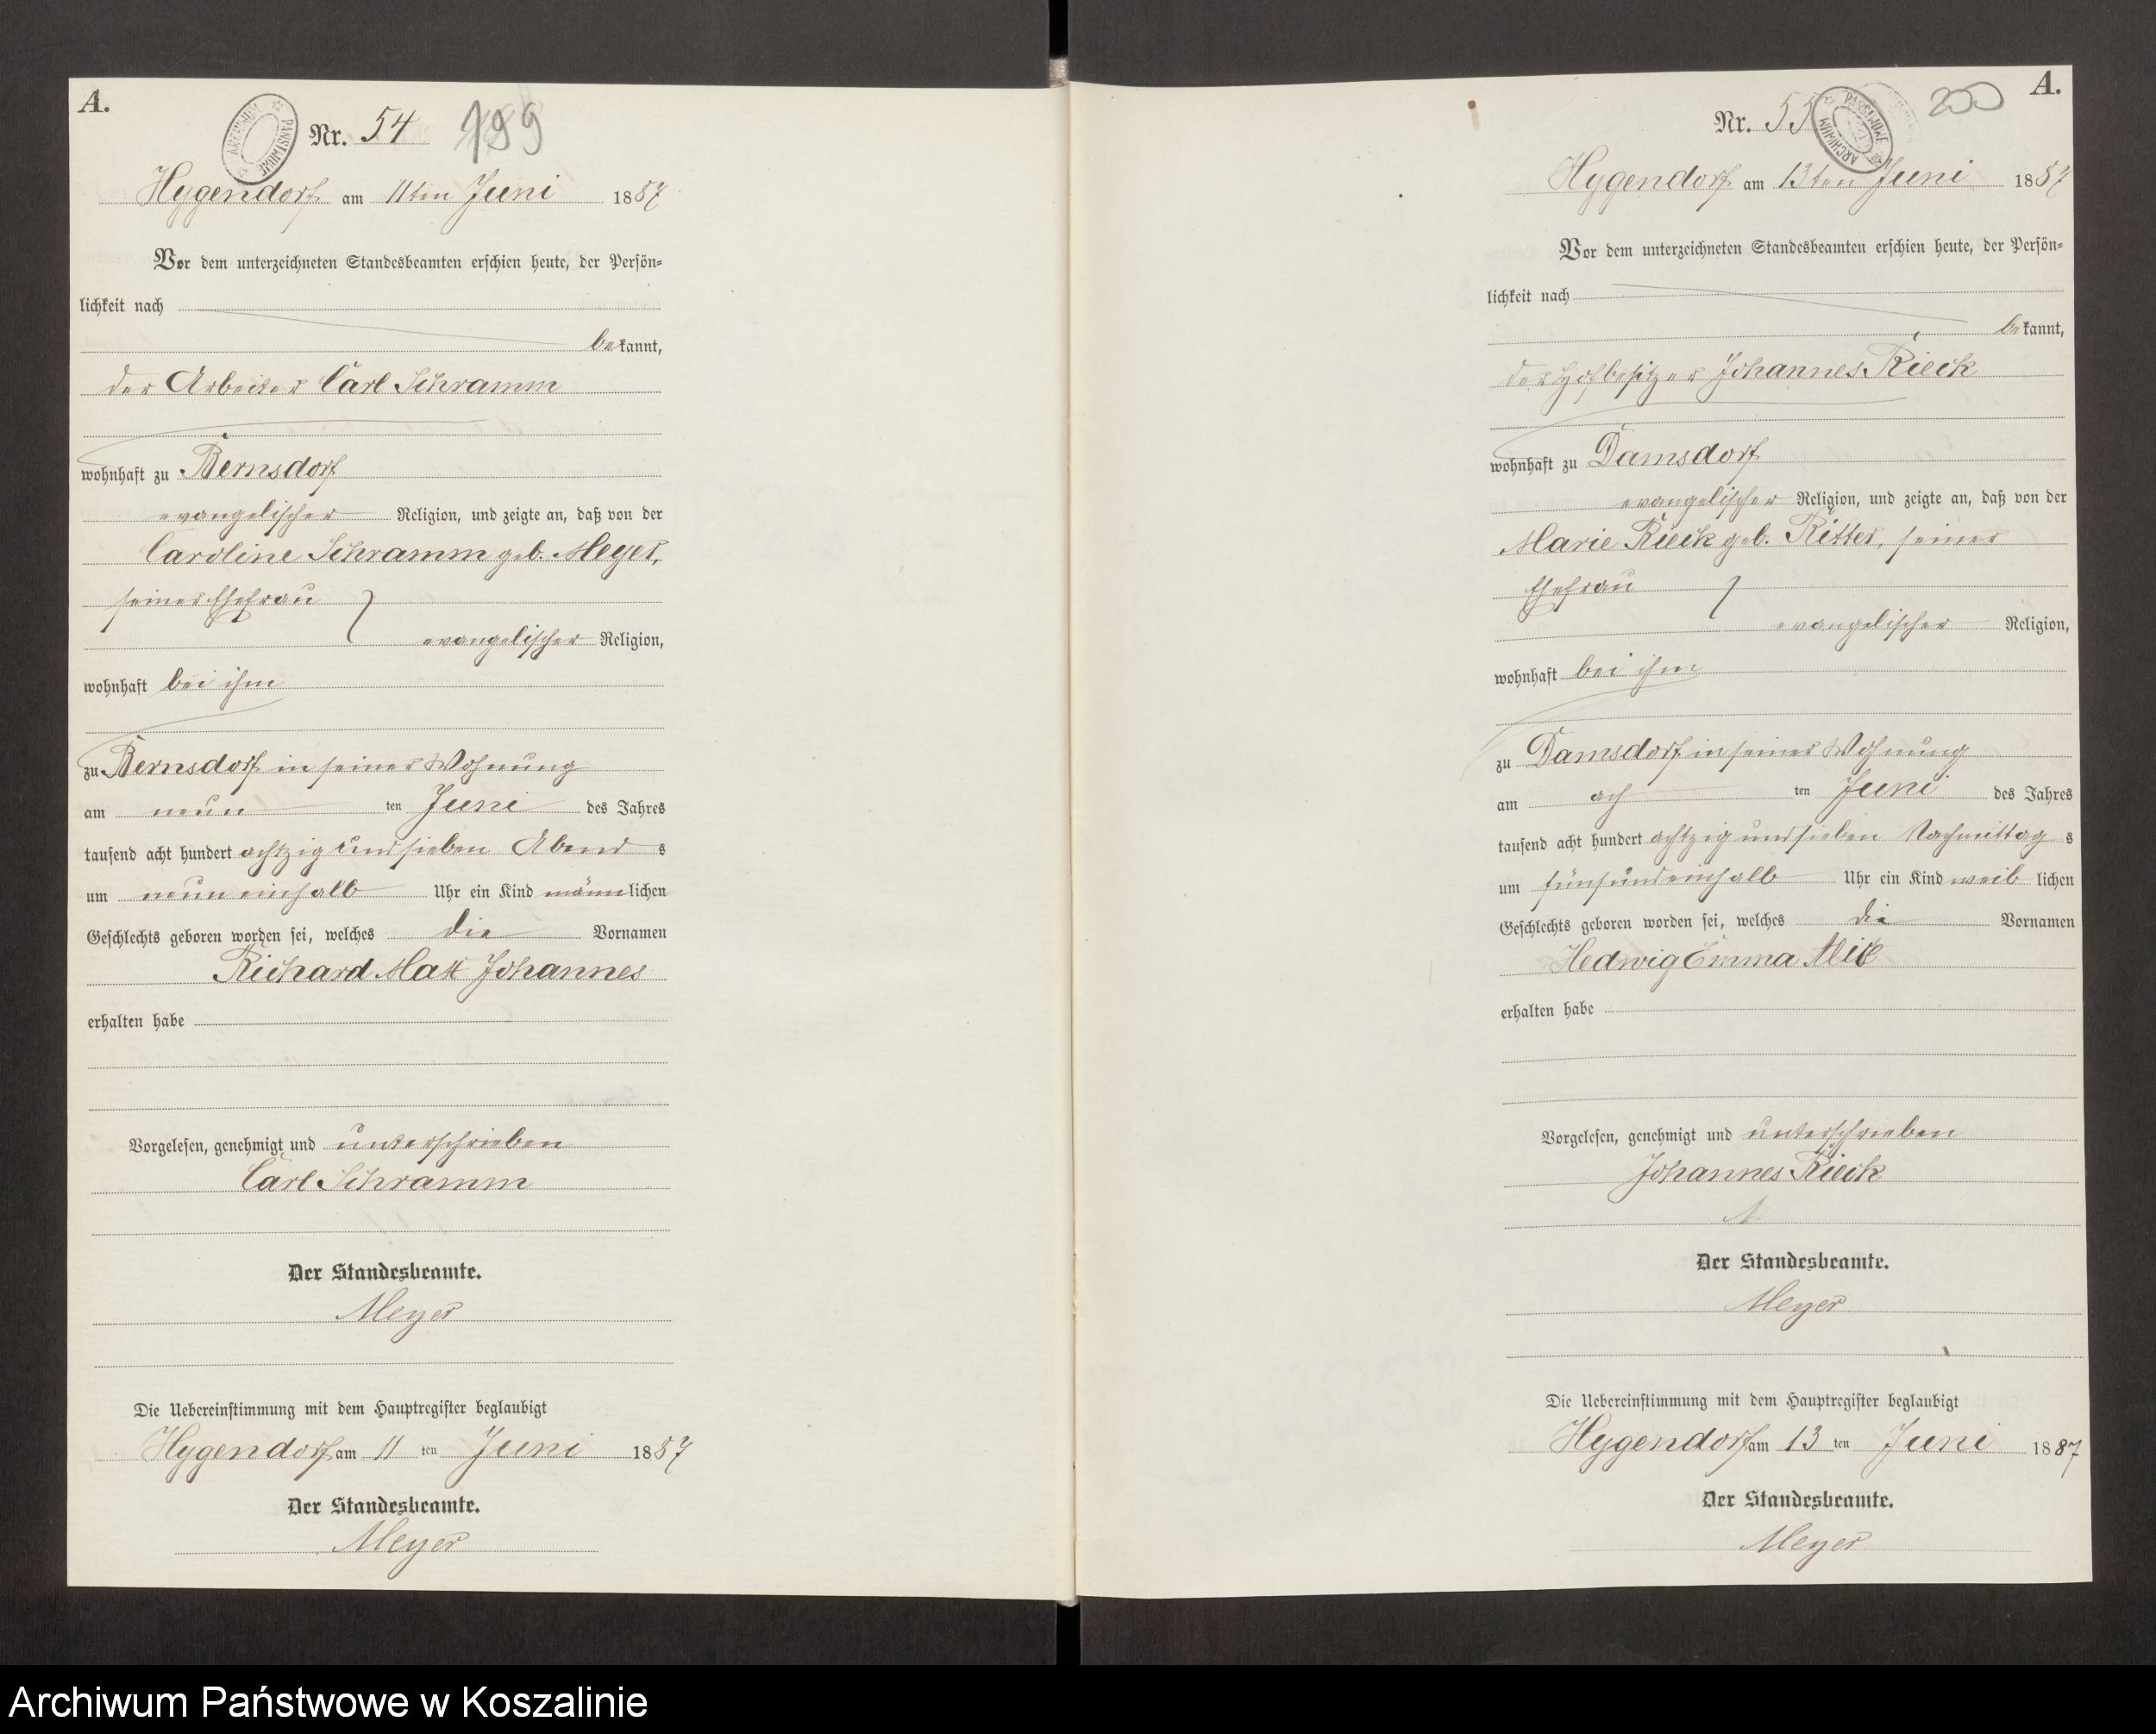 A.
ARCHIWUM PAŃSTWOWE
Nr. 54 199
Hygendorf am 11ten Juni 1887
Vor dem unterzeichneten Standesbeamten erschien heute, der Persön-
lichkeit nach
bekannt,
der Arbeiter Carl Schramm
wohnhaft zu Bernsdorf
evangelischer Religion, und zeigte an, daß von der
Caroline Schramm geb. Meyer,
seiner Ehefrau
evangelischer Religion,
wohnhaft bei ihm
zu Bernsdorf in seiner Wohnung
am neun ten Juni des Jahres
tausend acht hundert achtzig und sieben Abends
um neun einhalb Uhr ein Kind männlichen
Geschlechts geboren worden sei, welches die Vornamen
Richard Max Johannes
erhalten habe
Vorgelesen, genehmigt und unterschrieben
Carl Schramm
Der Standesbeamte.
Meyer
Die Uebereinstimmung mit dem Hauptregister beglaubigt
Hygendorf am 11 ten Juni 1887
Der Standesbeamte.
Meyer
A.
ARCHIWUM PAŃSTWOWE
Nr. 55 200
Hygendorf am 13ten Juni 1887
Vor dem unterzeichneten Standesbeamten erschien heute, der Persön-
lichkeit nach
bekannt,
der Hofbesitzer Johannes Rieck
wohnhaft zu Damsdorf
evangelischer Religion, und zeigte an, daß von der
Marie Rieck geb. Ritter, seiner
Ehefrau
evangelischer Religion,
wohnhaft bei ihm
zu Damsdorf in seiner Wohnung
am ach ten Juni des Jahres
tausend acht hundert achtzig und sieben Nachmittags
um fünf und einhalb Uhr ein Kind weiblichen
Geschlechts geboren worden sei, welches die Vornamen
Hedwig Emma
erhalten habe
Vorgelesen, genehmigt und unterschrieben
Johannes Rieck
Der Standesbeamte.
Meyer
Die Uebereinstimmung mit dem Hauptregister beglaubigt
Hygendorf am 13 ten Juni 1887
Der Standesbeamte.
Meyer
Archiwum Państwowe w Koszalinie